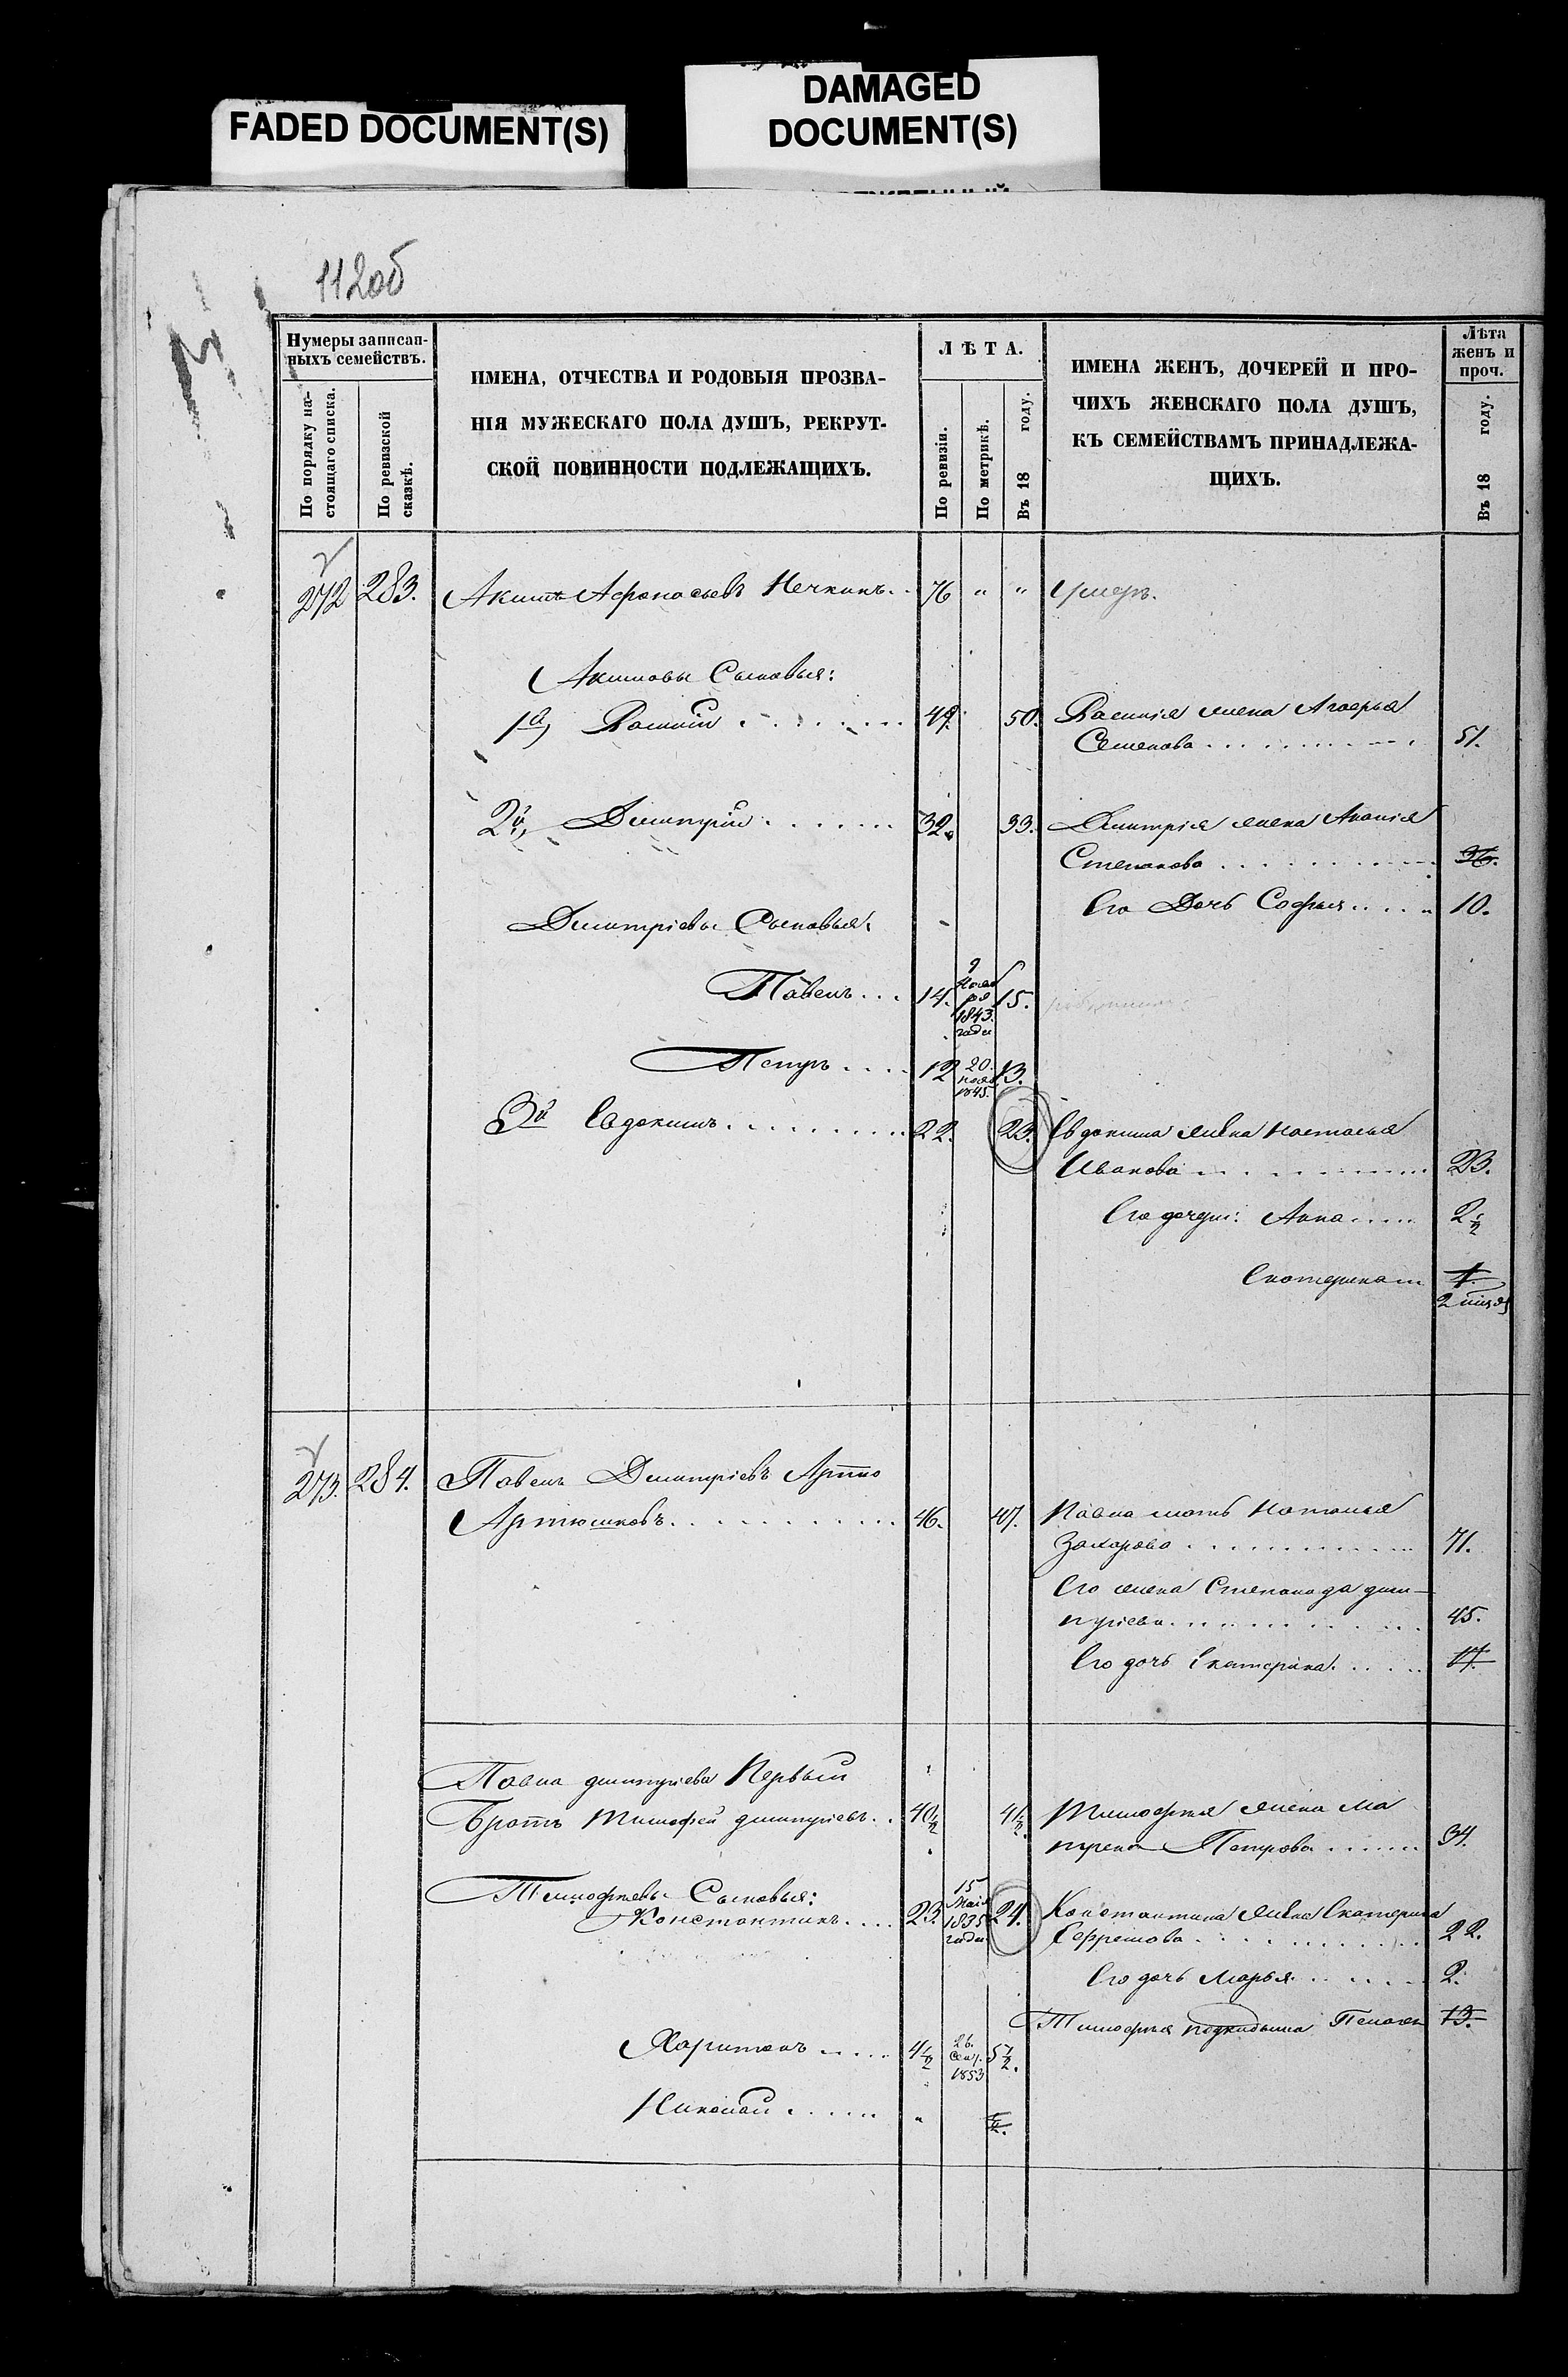 FADED DOCUMENT(S)
DAMAGED
DOCUMENT(S)
112об
Нумеры записан-
ныхъ семействъ.
По порядку на-
стоящаго списка.
По ревизской
сказкѣ.
ИМЕНА, ОТЧЕСТВА И РОДОВЫЯ ПРОЗВА-
НІЯ МУЖЕСКАГО ПОЛА ДУШЪ, РЕКРУТ-
СКОЙ ПОВИННОСТИ ПОДЛЕЖАЩИХЪ.
ЛѢТА.
По ревизіи.
По метрикѣ.
Въ 18 году.
ИМЕНА ЖЕНЪ, ДОЧЕРЕЙ И ПРО-
ЧИХЪ ЖЕНСКАГО ПОЛА ДУШЪ,
КЪ СЕМЕЙСТВАМЪ ПРИНАДЛЕЖА-
ЩИХЪ.
Лѣта
женъ и
проч.
Въ 18 году.
272 283. Акимъ Афонасьевъ Нечкинъ.. 76 " " Умеръ.
Акимовы Сыновья:
1й, Василий . . . . . . 49. 50. Василія жена
Семенова . . . . . . 51.
2й, Димитрій . . . . . . 32. 33. Димитрія жена
Степанова . . . . . . 36.
Его Дочь Софья . . . . 10.
Димитріевы Сыновья:
Павелъ . . . 14. 9 Нояб
ря
1843.
года 15.
Петръ . . . . 12 20.
нояб.
1845. 13.
3й Евдокимъ . . . . . . 22. 23. Евдокима жена Настасья
Иванова . . . . . . 23.
Его дочери: Анна . . . . 2½
Екатерина 1.
2 мцъя
273. 284. Павелъ Димитріевъ Артю
Артюшковъ . . . . . . 46. 47. Павла мать Наталья
Захарова . . . . . . 71.
Его жена Степанида дми-
тріева . . . . . . 45.
Его дочь Екатерина . . . . 17.
Павла дмитріева Первый
Братъ Тимофей дмитріевъ . . 40½ 41½. Тимофея жена Ма
трена Петрова . . . . 34.
Тимофеевы Сыновья:
Константинъ . . . . 23. 15
Маія
1835
года 24. Константина жена Екатерина
Ефремова . . . . . . 22.
Его дочь Марья . . . . 2.
Тимофея подкидыша Пелагея 13.
Харитонъ . . . . 4½ 26.
Сент.
1853 5½.
Николай . . . . "